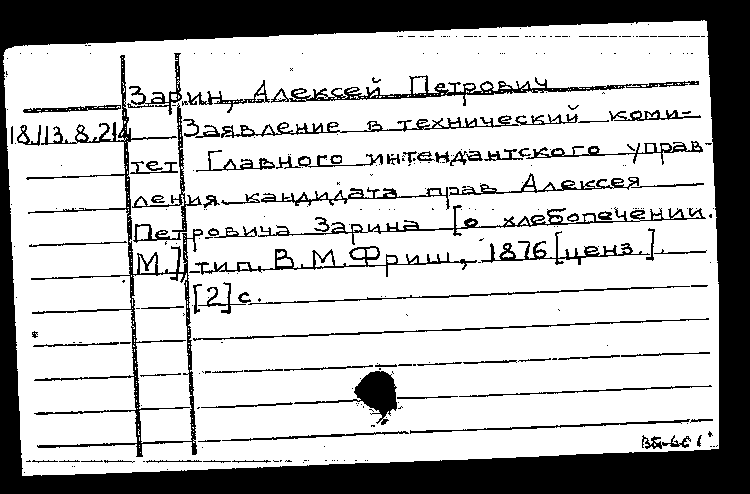 Зарин, Алексей Петрович
18.113.8.214 Заявление в технический коми-
тет Главного интендантского управ-
ления кандидата прав Алексея
Петровича Зарина [о хлебопечении.
М.], тип. В.М.Фриш, 1876 [ценз.].
[2] с.